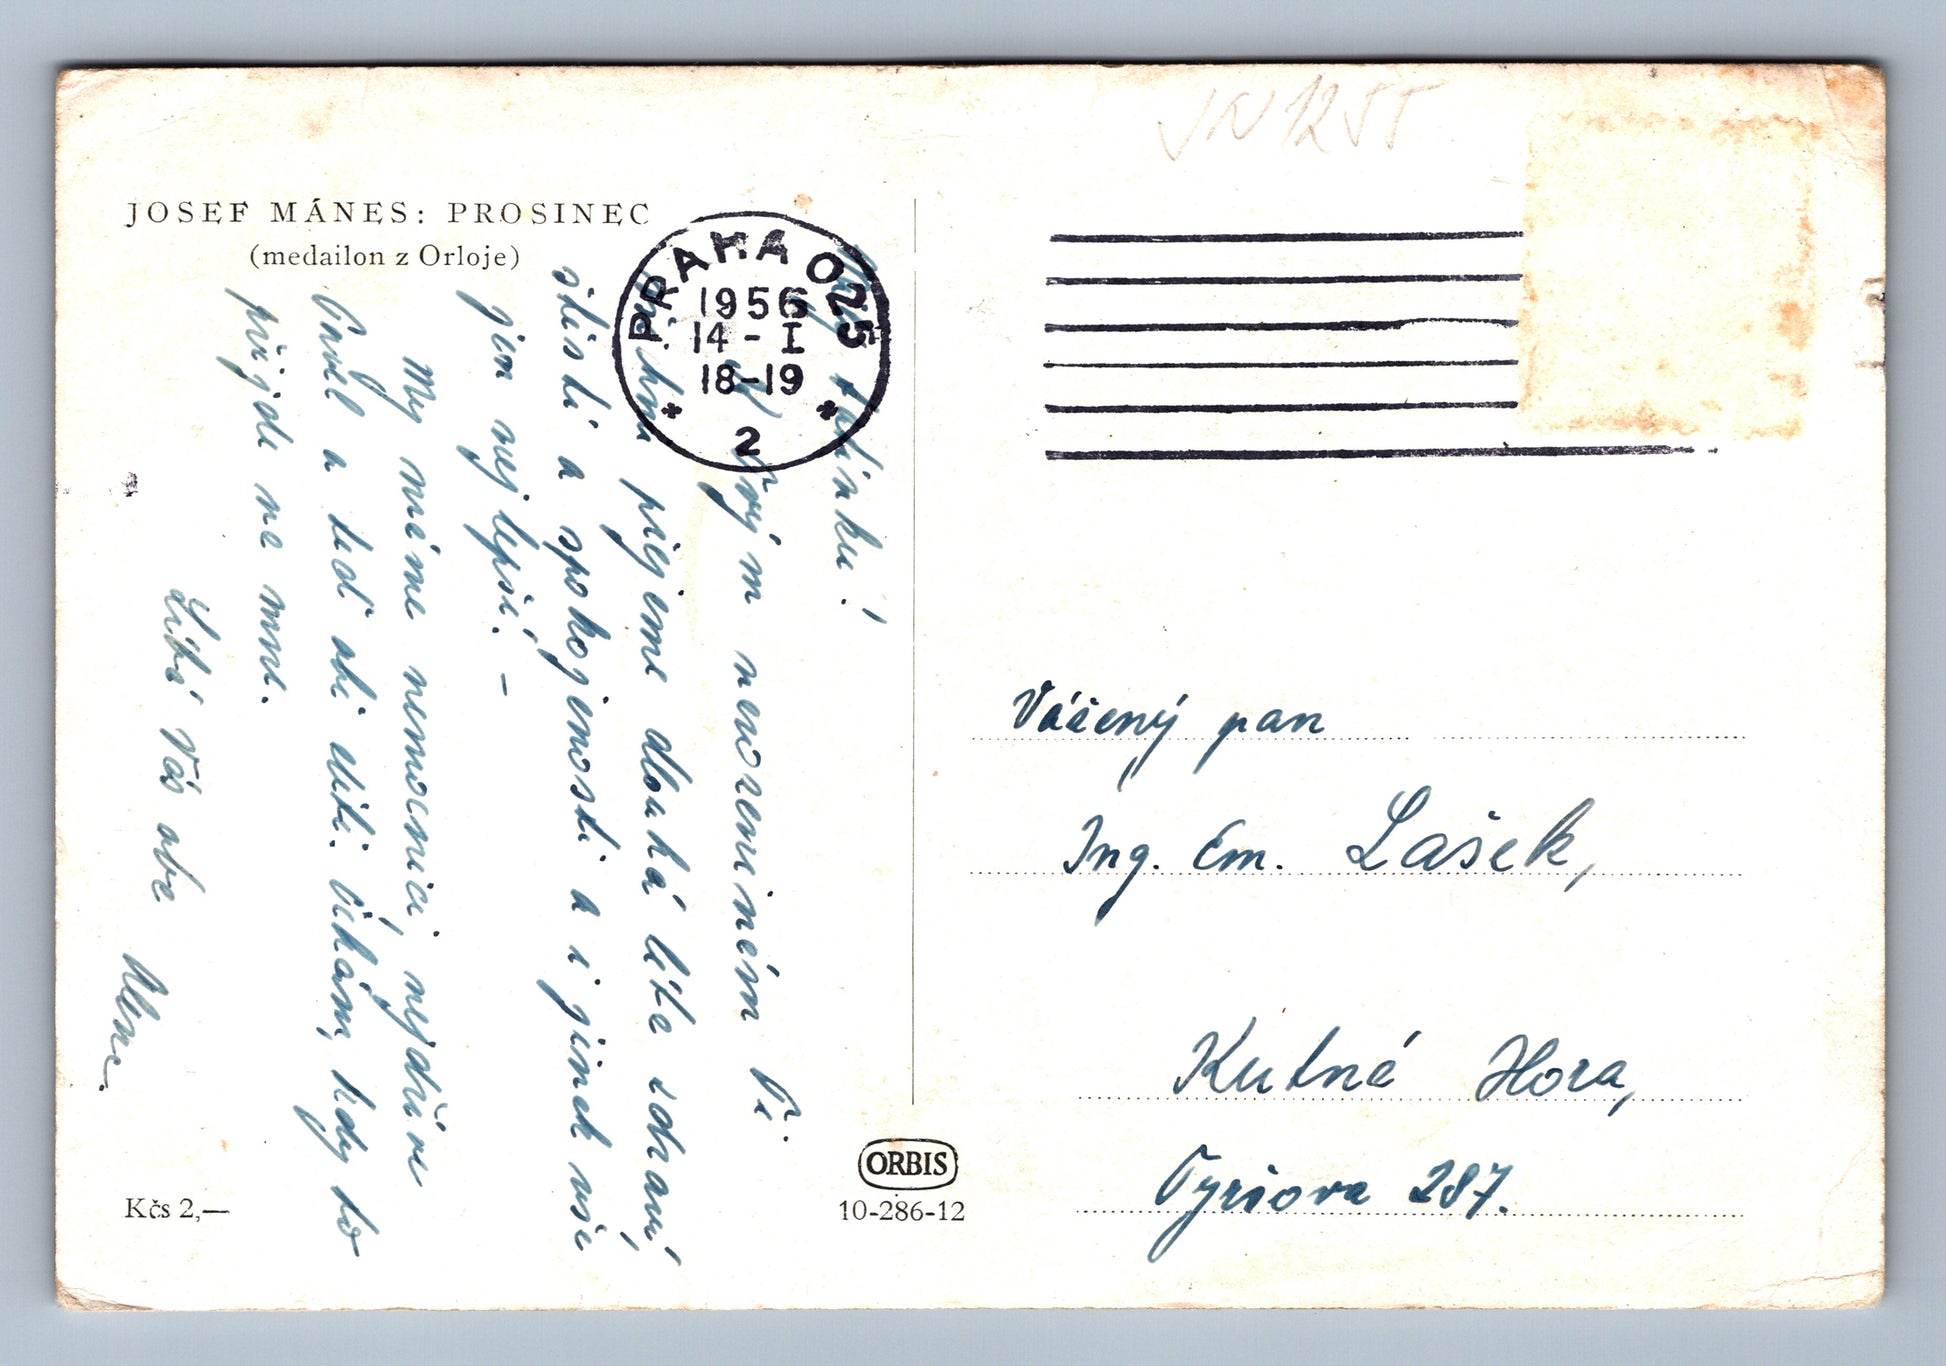 JOSEF MÁNES: PROSINEC
(medailon z Orloje)
PRAHA 025
1956
14-I
18-19
2
tatínku!
novým neuzeninám
přejeme dlouhá léta zdraví,
štěstí a spokojenosti a i jinak vše
jen nejlepší. –
My máme nemocnici nejdříve
Pavel a teď obě děti. Čekám, kdy to
přijde na mne.
Líbá Vás obě
Kčs 2,—
ORBIS
10-286-12
Vážený pan
Ing. Em. Lašek,
Kutná Hora,
Tyršova 287.